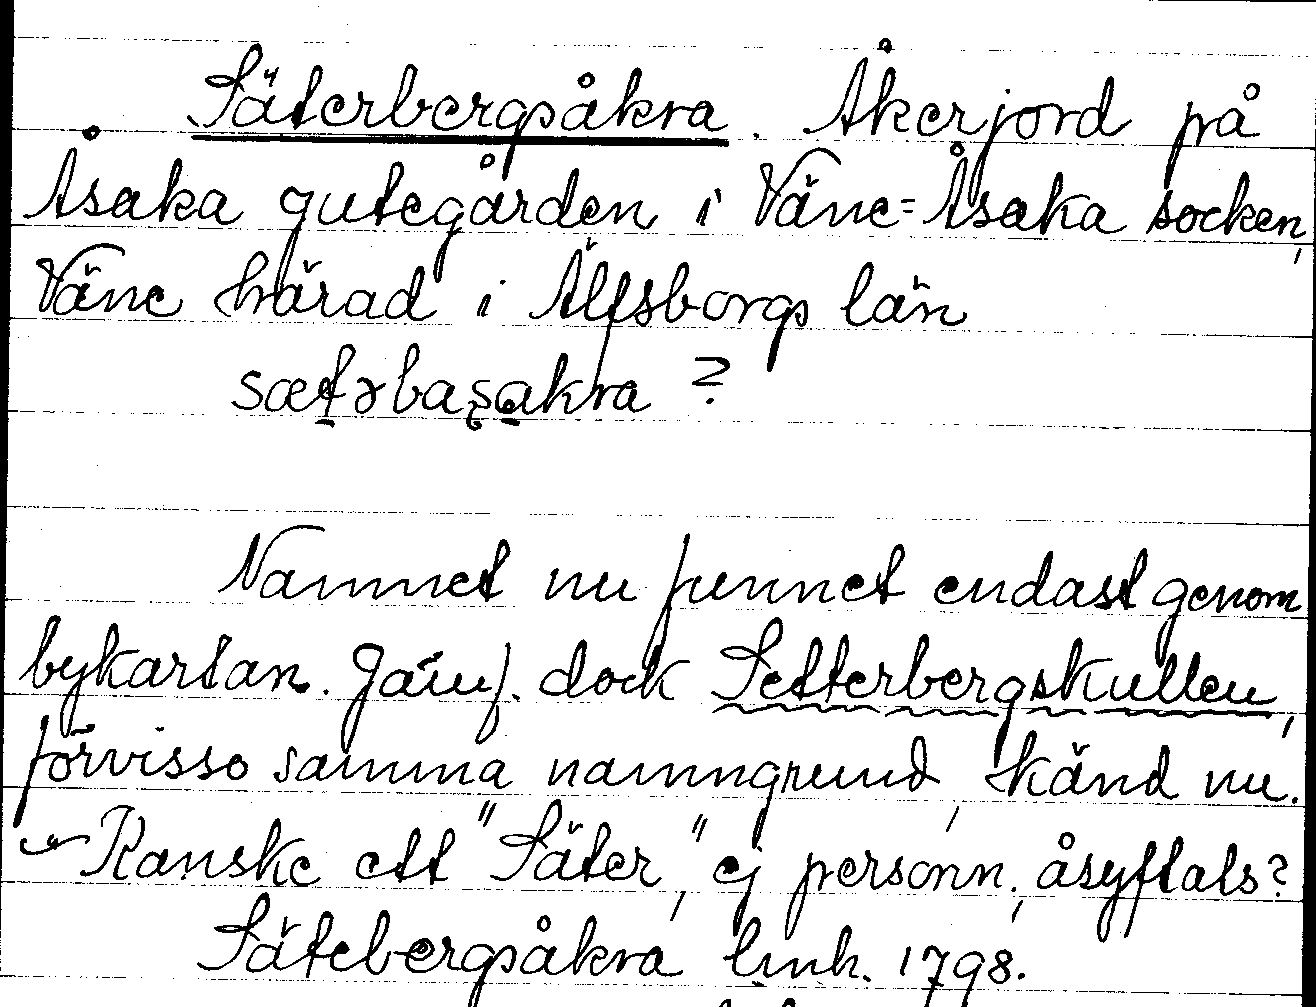 Säterbergsåkra. Åkerjord på
Åsaka gutegården i Väne=Åsaka socken,
Väne härad i Älfsborgs län
sætərbasakra ?
Namnet nu funnet endast genom
bykartan. Jämf. dock Setterbergskullen,
förvisso samma namngrund, känd nu.
Kanske ett "Säter," ej personn., åsyftats?
Sätebergsåkra link. 1798.